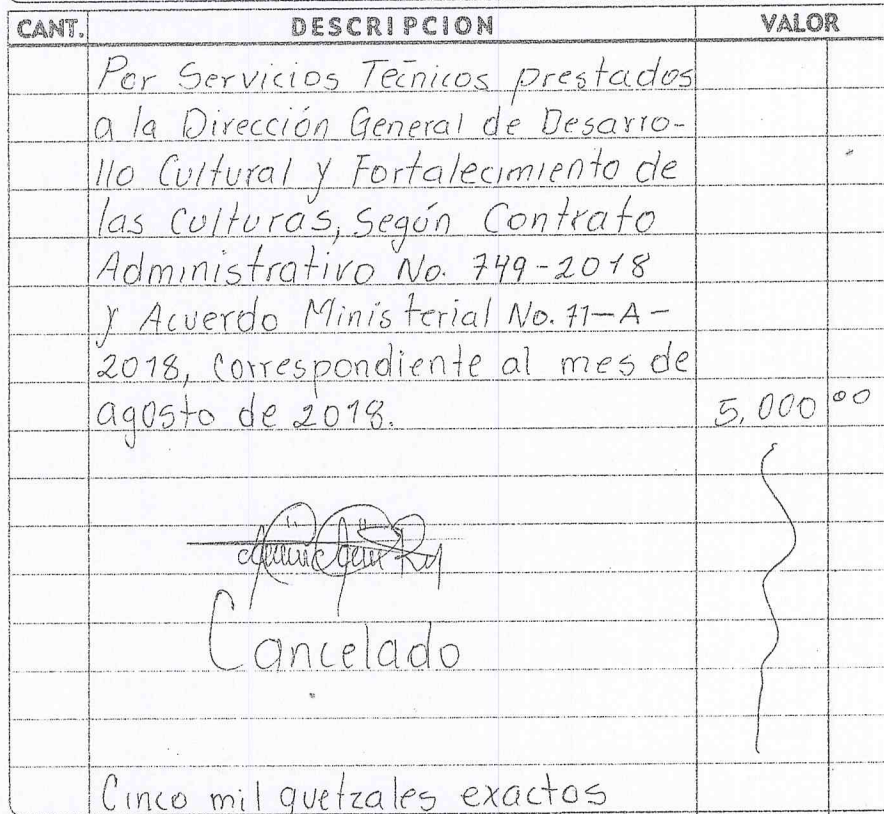 CANT. DESCRIPCION VALOR
Por Servicios Técnicos prestados
a la Dirección General de Desarro-
llo Cultural y Fortalecimiento de
las Culturas, Según Contrato
Administrativo No. 749-2018
y Acuerdo Ministerial No. 71-A-
2018, correspondiente al mes de
agosto de 2018. 5,000 00
Cancelado
Cinco mil quetzales exactos